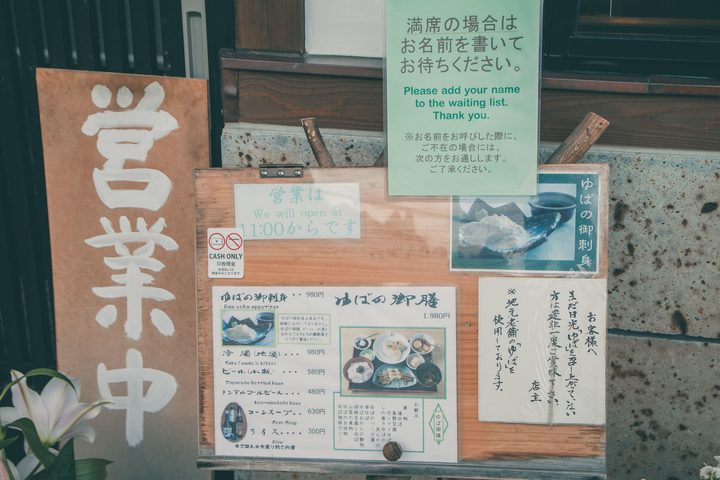 営業中
満席の場合は
お名前を書いて
お待ちください。
Please add your name
to the waiting list.
Thank you.
※お名前をお呼びした際に、
ご不在の場合には、
次の方をお通しします。
ご了承ください。
営業は
We will open at
11:00からです
CASH ONLY
ゆばの御刺身
ゆばの御刺身・・980円
Raw yuba appetizer
冷酒(地酒)・・・980円
ビール(小瓶)・・・580円
480円
コーンスープ・・630円
Corn Soup
ライス・・・300円
Rice
ゆばの御膳
1,980円
お献立
ゆば御膳
お客様へ
まだ日光ゆばを召し上がっていない
方は是非一度ご賞味下さい。
店主
※地元老舗の「ゆば」を
使用しております。